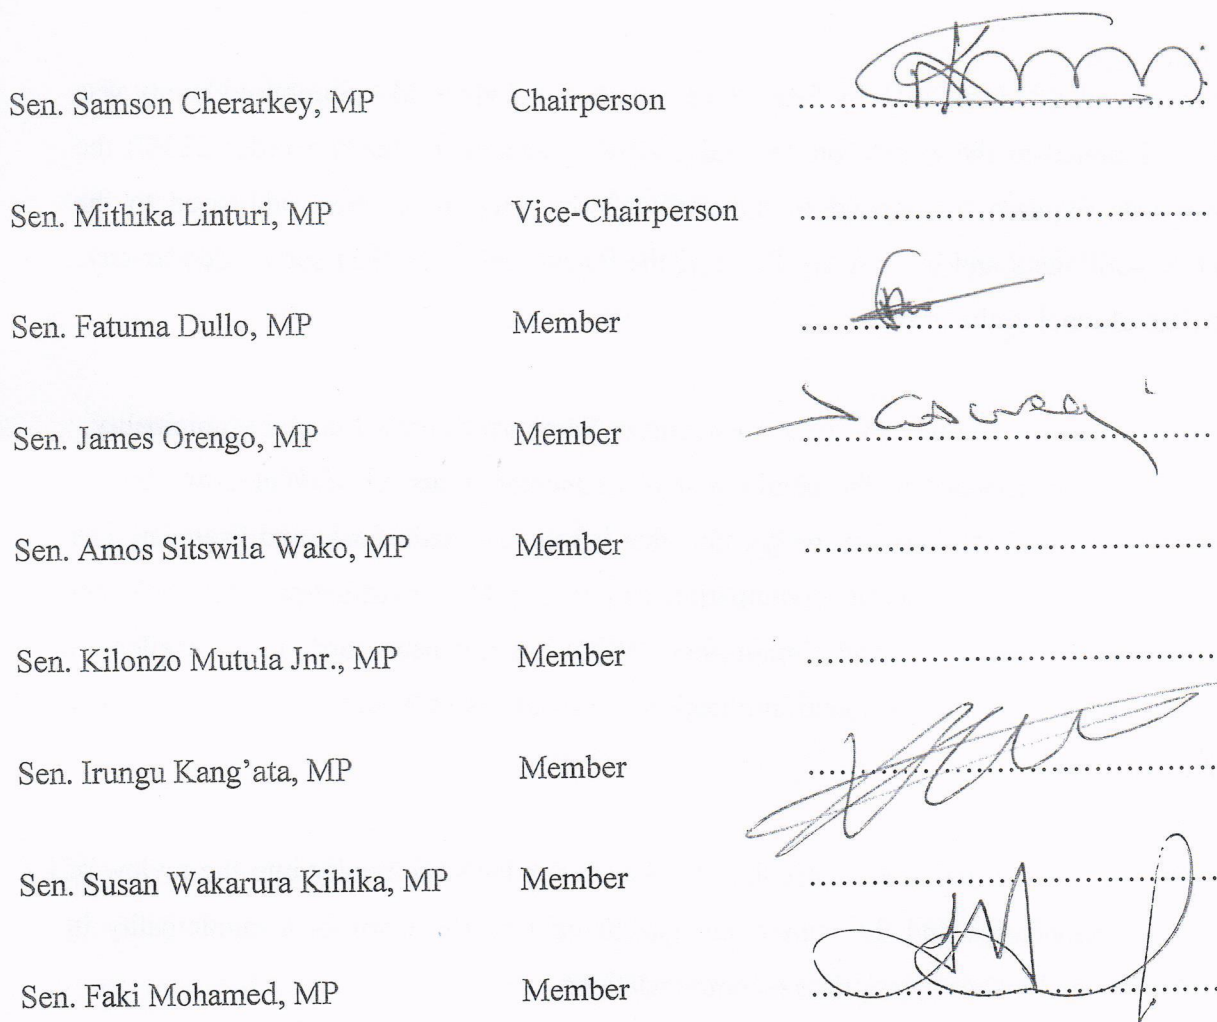 Sen. Samson Cherarkey, MP Chairperson ........................................
Sen. Mithika Linturi, MP Vice-Chairperson ........................................
Sen. Fatuma Dullo, MP Member ........................................
Sen. James Orengo, MP Member ........................................
Sen. Amos Sitswila Wako, MP Member ........................................
Sen. Kilonzo Mutula Jnr., MP Member ........................................
Sen. Irungu Kang’ata, MP Member ........................................
Sen. Susan Wakarura Kihika, MP Member ........................................
Sen. Faki Mohamed, MP Member ........................................